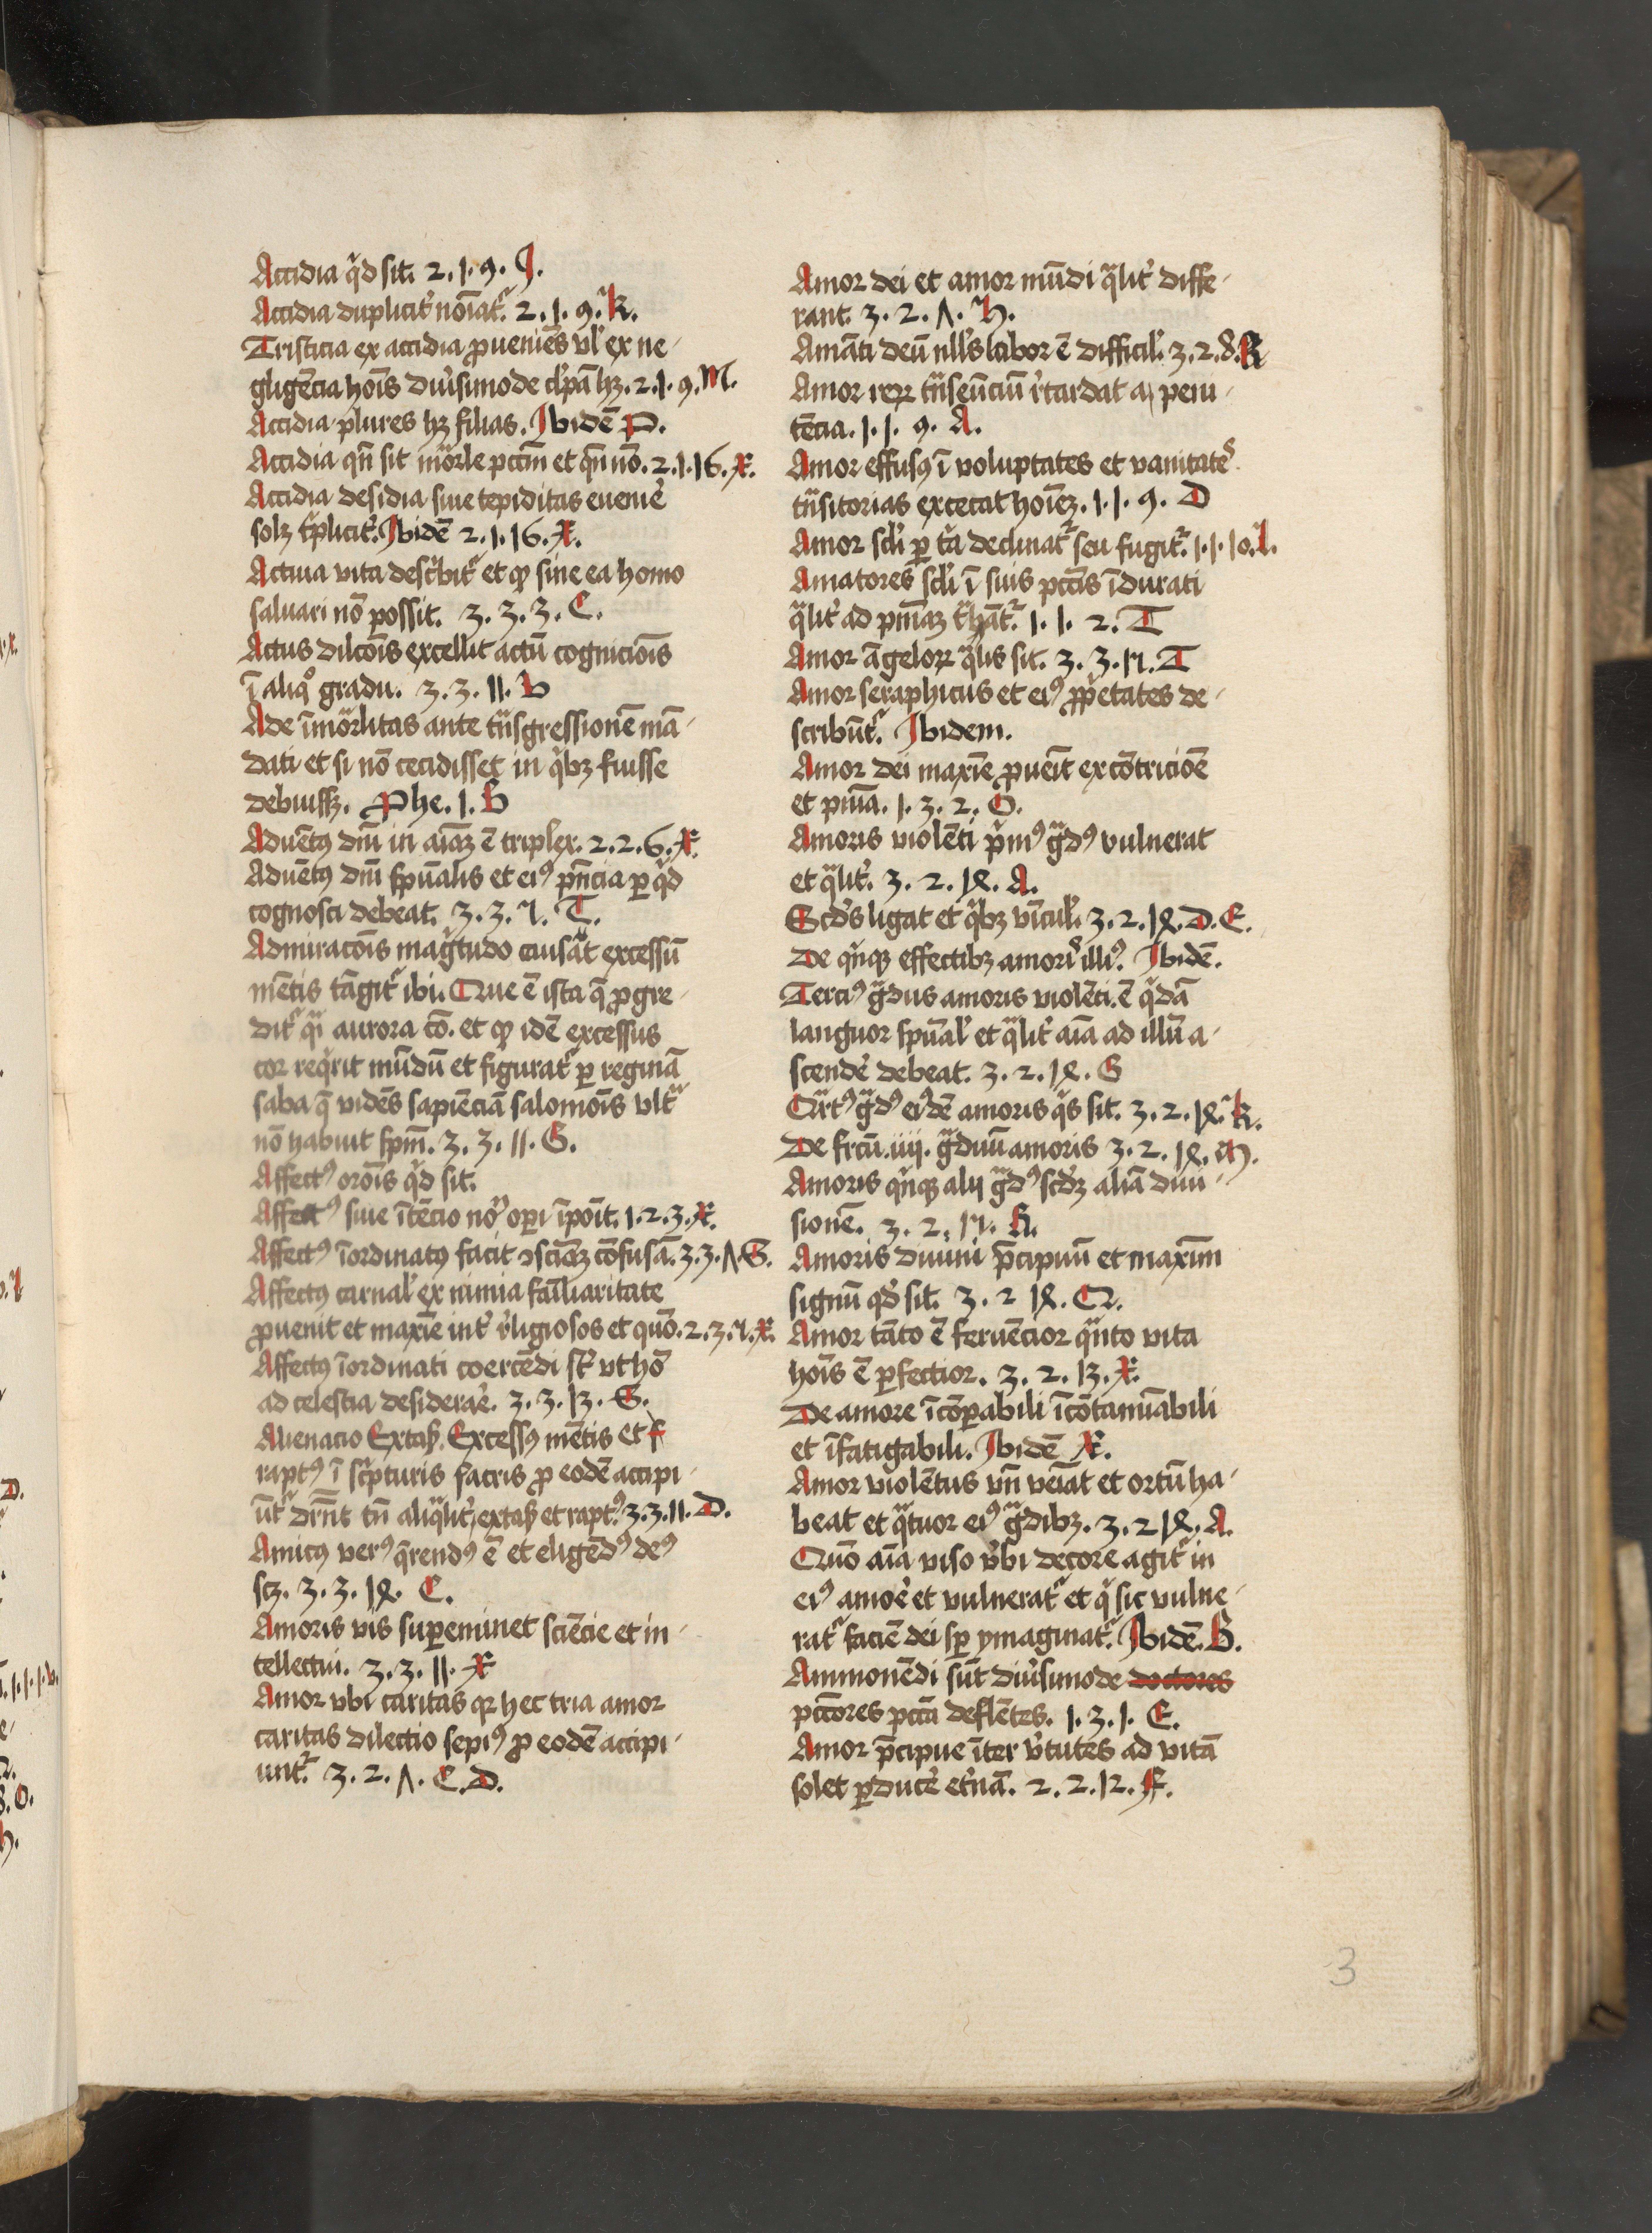 Accidia qͥd sit. 2. 1. 9. J.
Accidia duplicit᷑ no͞iat᷑. 2. 1. 9. K.
Tristicia ex accidia ꝓueniēs vl᷑ ex ne-
gligēcia ho͞is diu᷑simode cl᷑pā hꝫ. 2. 1. 9. M.
Accidia plures hꝫ filias. Ibidē P.
Accidia qn̄ sit mor͞le pctm̄ et qn̄ nō. 2. 1. 16. X.
Accidia desidia siue tepiditas euenir᷑
solꝫ tͥplicit᷑. Ibidē 2. 1. 16. X.
Actiua vita descͥbit᷑ et ꝙ sine ea homo
saluari nō possit. 3. 3. 3. C.
Actus dilco͞is excellit actū cognicio͞is
ī aliqͦ gradu. 3. 3. 11. V
Ade īmor͞litas ante tn̄sgressionē mā-
dati et si nō cecidisset in qͥbꝫ fuisse
debuissꝫ. Phe. 1. B
Aduētꝰ dn̄i in aīaꝫ ē triplex. 2. 2. 6. X.
Aduētꝰ dn̄i spūalis et eiꝰ pn̄cia ꝑ qͥd
cognosci debeat. 3. 3. 7. T.
Admiraco͞is magͥtudo causāt excessū
mētis tāgit᷑ ibi. Que ē ista q̄ ꝓgre-
dit᷑ qͣi aurora ꞇō. et ꝙ idē excessus
cor reqͥrit mūdū et figurat᷑ ꝑ reginā
saba q̄ vidēs sapiēciā salomo͞is vltͣ
nō habuit spm̄. 3. 3. 11. G.
Affectꝰ oro͞is qͥd sit.
Affectꝰ siue ītēcio no᷑ oꝑi īpo͞it. 1. 2. 3. X.
Affectꝰ īordinatꝰ facit ↄsciaꝫ cōfusā. 3. 3. Λ. G.
Affectꝰ carnal᷑ ex nimia fa͞iliaritate
ꝓuenit et maxīe int᷑ r᷑ligiosos et quō. 2. 3. 7. X.
Affectꝰ īordinati coercēdi st᷑ vt hō
ad celestia desiderar᷑. 3. 3. 13. G.
Alienacio Extaß. Excessꝰ mētis et
raptꝰ ī scͥpturis sacris ꝓ eodē accipi-
ūt᷑ dr͞nt tn̄ aliqͣlit᷑, extaß et raptꝰ. 3. 3. 11. D.
Amicꝰ verꝰ q̄rendꝰ ē et eligēdꝰ deꝰ
scꝫ. 3. 3. 14. C.
Amoris vis suꝑeminet sciēcie et in-
tellectui. 3. 3. 11. X
Amor vbi caritas qꝛ hec tria amor
caritas dilectio sepiꝰ ꝓ eodē accipi-
unt᷑. 3. 2. Λ. C. D.
Amor dei et amor mūdi qͣlit᷑ diffe-
rant. 3. 2. Λ. H.
Amāti deū nll᷑s labor ē difficil᷑. 3. 2. 8. K
Amor reꝝ tn̄seūciū r᷑tardat a peni-
tēcia. 1. 1. 9. A.
Amor effusꝰ ī voluptates et vanitates
tn̄sitorias excecat ho͞ieꝫ. 1. 1. 9. D
Amor scl᷑i ꝑ tͥa declinat᷑ seu fugit᷑. 1. 1. 10. L.
Amatores scl᷑i ī suis pcc͞is īdurati
qͣlit᷑ ad pn̄iaꝫ tͣhāt᷑. 1. 1. 2. T
Amor āgeloꝝ qͣlis sit. 3. 3. 17. T
Amor seraphicus et eiꝰ ꝓpͥetates de-
scribūt᷑. Ibidem.
Amor dei maxīe ꝓuēit ex cōtricio͞e
et pn̄ia. 1. 3. 2. O.
Amoris violēti pͥmꝰ gͣdꝰ vulnerat
et qͣlit᷑. 3. 2. 14. A.
Scd᷑s ligat et qͥbꝫ vīcul᷑. 3. 2. 14. D. E.
De qͥnqꝫ effectibꝫ amor᷑ illiꝰ. Ibidē.
Terciꝰ gͣdus amoris violēti. ē qͥdā
languor spūal᷑ et qͣlit᷑ aīa ad illū a-
scender᷑ debeat. 3. 2. 14. G
Qͣrtꝰ gͣdꝰ eiꝰdē amoris qͥs sit. 3. 2. 14. K.
De frcū. iiij. gͣduū amoris 3. 2. 14. M.
Amoris qͥnqꝫ alij gͣdꝰ scd᷑ꝫ aliā diui-
sionē. 3. 2. 17. A.
Amoris diuini p̄cipuū et maxīm
signū qd᷑ sit. 3. 2 14. Q.
Amor tāto ē feruēcior qͣnto vita
ho͞is ē ꝑfectior. 3. 2. 13. X.
De amore īcōꝑabili īcōtamīabili
et īfatigabili. Ibidē X.
Amor violētus vn̄ veīat et ortū ha-
beat et qͣtuor eiꝰ gͣdibꝫ. 3. 2 14. A.
Quō aīa viso v᷑bi decore agit᷑ in
eiꝰ amor᷑ et vulnerat᷑ et qͥ sic vulne-
rat᷑ faciē dei sꝑ ymaginat᷑. Ibidē. B.
Ammonēdi sūt diu᷑simode doctores
pcc͞ores pcc͞a deflētes. 1. 3. 1. E.
Amor p̄cipue īter v᷑tutes ad vitā
solet ꝑducer᷑ et᷑nā. 2. 2. 12. F.
3